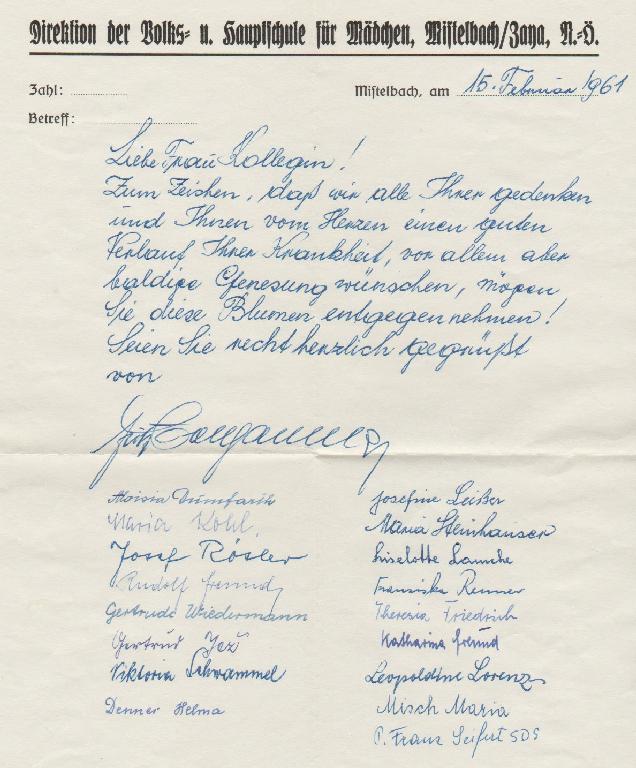 Direktion der Volks- u. Hauptschule für Mädchen, Mistelbach/Zaya, N.-Ö.
Zahl: ............
Mistelbach, am 15. Februar 1961
Betreff: ............
Liebe Frau Kollegin!
Zum Zeichen, daß wir alle Ihrer gedenken
und Ihnen vom Herzen einen guten
Verlauf Ihrer Krankheit, vor allem aber
baldige Genesung wünschen, mögen
Sie diese Blumen entgegennehmen!
Seien Sie recht herzlich gegrüßt
von
Fritz
Aloisia
Maria Kohl.
Josef Rösler
Rudolf Freund
Gertrude Wiedermann
Gertrud Jež
Viktoria Schwammel
Denner Helma
Josefine Leißer
Maria Steinhauser
Liselotte
Franziska Renner
Theresia Friedrich
Katharina Freund
Leopoldine Lorenz
Misch Maria
P. Franz Seifert SDS